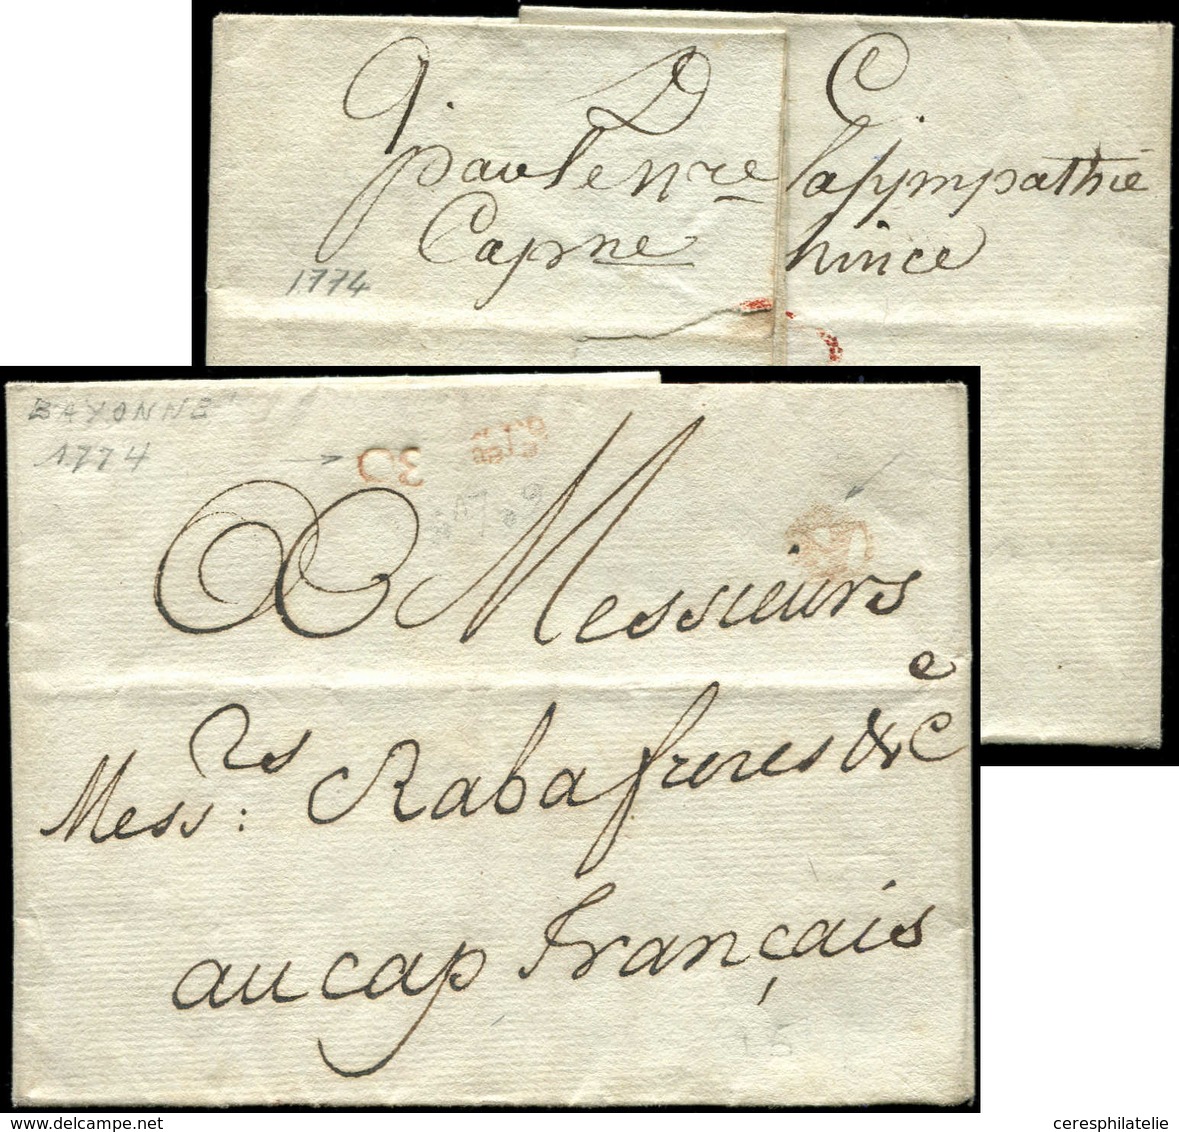 D C
par le Nre la sympathie
Capne hince
1774
BAYONNE
1774
30
Messieurs
Messrs: Raba freres & Ce
au cap français
ceresphilatelie